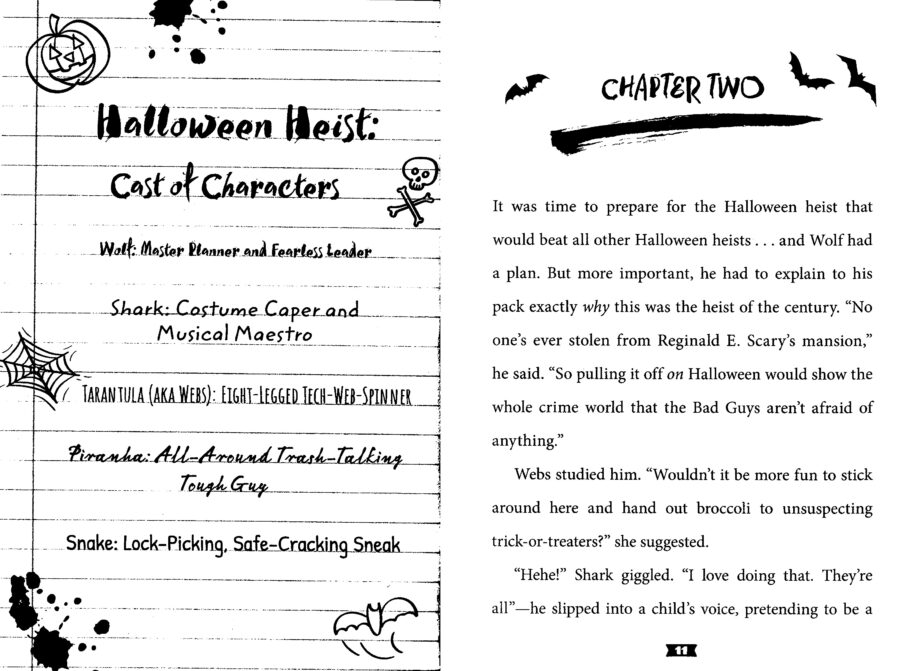 Halloween Heist:
Cast of Characters
Wolf: Master Planner and Fearless Leader
Shark: Costume Caper and
Musical Maestro
Tarantula (aka Webs): Eight-Legged Tech-Web-Spinner
Piranha: All-Around Trash-Talking
Tough Guy
Snake: Lock-Picking, Safe-Cracking Sneak
CHAPTER TWO
It was time to prepare for the Halloween heist that
would beat all other Halloween heists . . . and Wolf had
a plan. But more important, he had to explain to his
pack exactly why this was the heist of the century. “No
one’s ever stolen from Reginald E. Scary’s mansion,”
he said. “So pulling it off on Halloween would show the
whole crime world that the Bad Guys aren’t afraid of
anything.”
Webs studied him. “Wouldn’t it be more fun to stick
around here and hand out broccoli to unsuspecting
trick-or-treaters?” she suggested.
“Hehe!” Shark giggled. “I love doing that. They’re
all”—he slipped into a child’s voice, pretending to be a
11